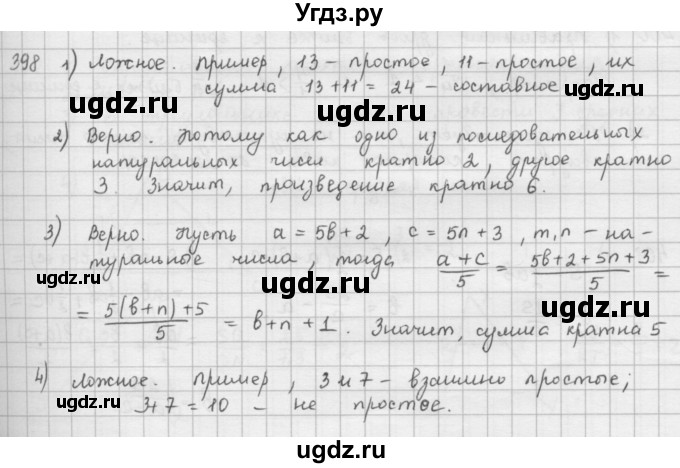 Угдз.ру
398 1) Ложное. Пример, 13 – простое, 11 – простое, их
сумма 13 + 11 = 24 – составное
ugdz.ru ugdz.ru
2) Верно. Потому как одно из последовательных
натуральных чисел кратно 2, другое кратно
3. Значит, произведение кратно 6.
ugdz.ru
3) Верно. Пусть a = 5в + 2, c = 5n + 3, m, n – на-
туральные числа, тогда (a + c)/5 = (5в + 2 + 5n + 3)/5 =
ugdz.ru ugdz.ru ugdz.ru
= (5(в + n) + 5)/5 = в + n + 1. Значит, сумма кратна 5
ugdz.ru
4) Ложное. Пример, 3 и 7 – взаимно простые;
3 + 7 = 10 – не простое.
ugdz.ru ugdz.ru ugdz.ru